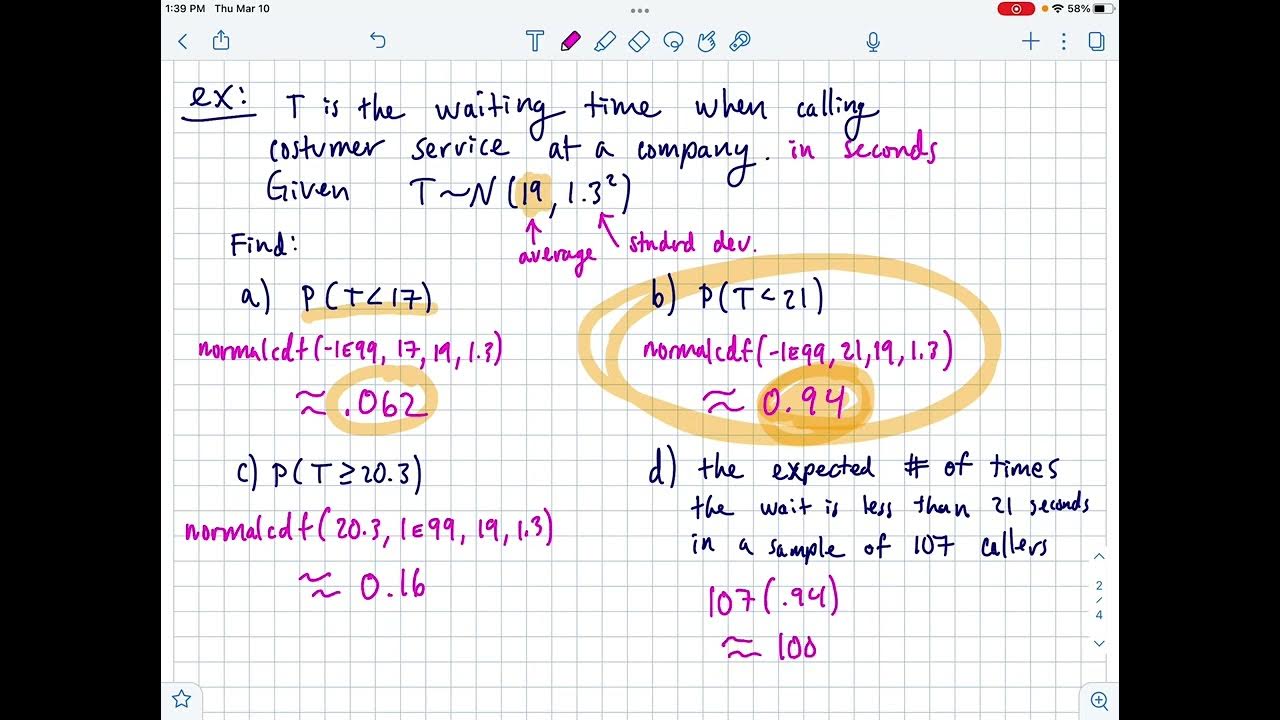 1:39 PM Thu Mar 10
58%
ex: T is the waiting time when calling
costumer service at a company. in seconds
Given T~N(19, 1.3²)
average
stndrd dev.
Find:
a) P(T<17)
normalcdf(-1E99, 17, 19, 1.3)
≈ .062
b) P(T<21)
normalcdf(-1E99, 21, 19, 1.3)
≈ 0.94
c) P(T≥20.3)
normalcdf(20.3, 1E99, 19, 1.3)
≈ 0.16
d) the expected # of times
the wait is less than 21 seconds
in a sample of 107 callers
107(.94)
≈ 100
2
/
4